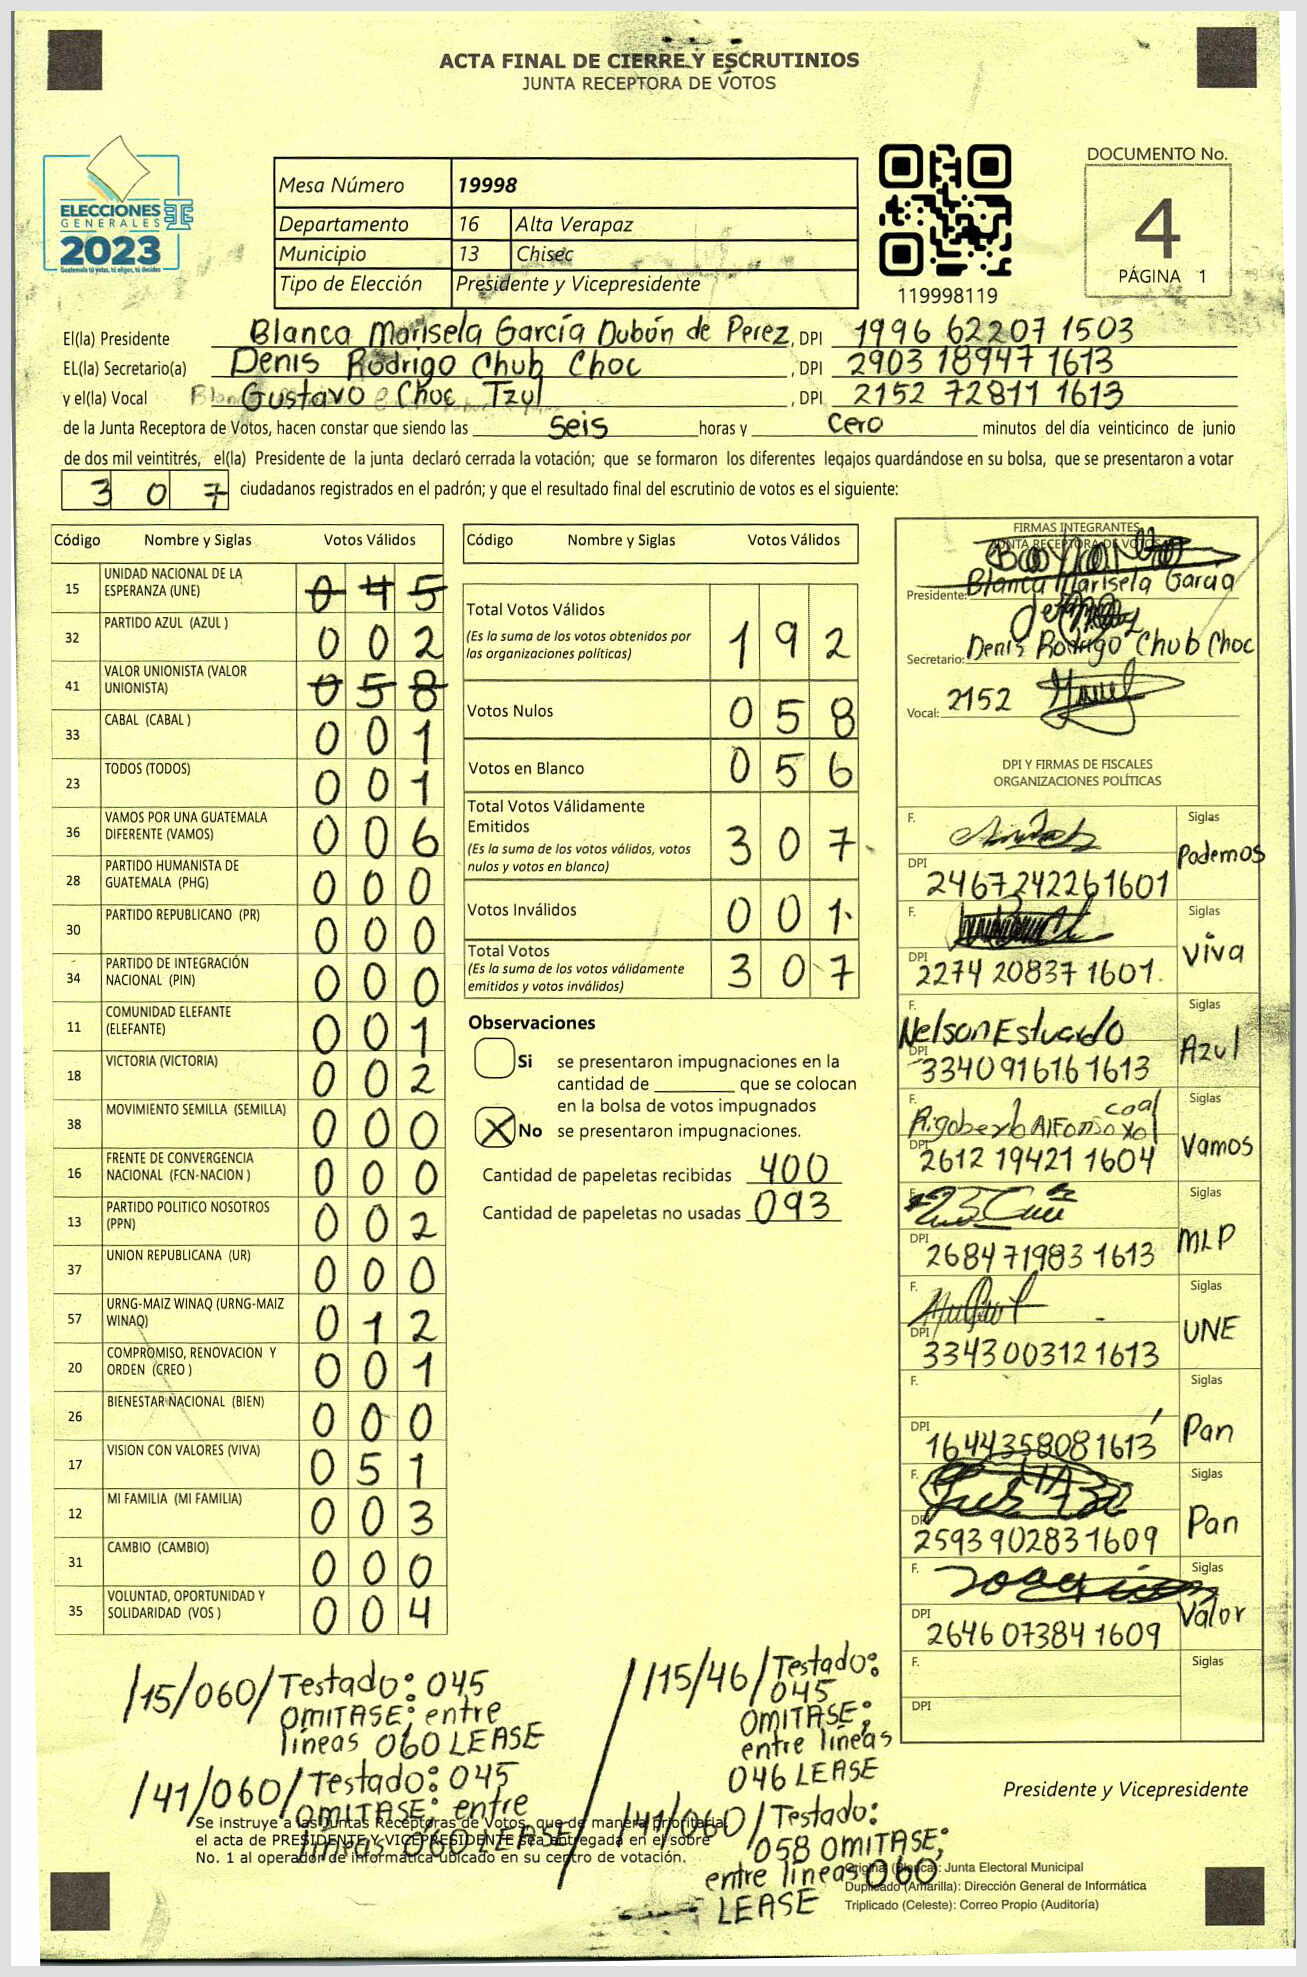 ACTA FINAL DE CIERRE Y ESCRUTINIOS
JUNTA RECEPTORA DE VOTOS
ELECCIONES
GENERALES
2023
Guatemala tú votas, tú eliges, tú decides
Mesa Número 19998
Departamento 16 Alta Verapaz
Municipio 13 Chisec
Tipo de Elección Presidente y Vicepresidente
119998119
DOCUMENTO No.
4
PÁGINA 1
El(la) Presidente Blanca Marisela García Dubón de Perez, DPI 1996 62207 1503
EL(la) Secretario(a) Denis Rodrigo Chub Choc, DPI 2903 18947 1613
y el(la) Vocal Gustavo Choc Tzul, DPI 2152 72811 1613
de la Junta Receptora de Votos, hacen constar que siendo las seis horas y cero minutos del día veinticinco de junio
de dos mil veintitrés, el(la) Presidente de la junta declaró cerrada la votación; que se formaron los diferentes legajos guardándose en su bolsa, que se presentaron a votar
307 ciudadanos registrados en el padrón; y que el resultado final del escrutinio de votos es el siguiente:
Código Nombre y Siglas Votos Válidos
15 UNIDAD NACIONAL DE LA ESPERANZA (UNE) 045
32 PARTIDO AZUL (AZUL ) 002
41 VALOR UNIONISTA (VALOR UNIONISTA) 058
33 CABAL (CABAL ) 001
23 TODOS (TODOS) 001
36 VAMOS POR UNA GUATEMALA DIFERENTE (VAMOS) 006
28 PARTIDO HUMANISTA DE GUATEMALA (PHG) 000
30 PARTIDO REPUBLICANO (PR) 000
34 PARTIDO DE INTEGRACIÓN NACIONAL (PIN) 000
11 COMUNIDAD ELEFANTE (ELEFANTE) 001
18 VICTORIA (VICTORIA) 002
38 MOVIMIENTO SEMILLA (SEMILLA) 000
16 FRENTE DE CONVERGENCIA NACIONAL (FCN-NACION ) 000
13 PARTIDO POLITICO NOSOTROS (PPN) 002
37 UNION REPUBLICANA (UR) 000
57 URNG-MAIZ WINAQ (URNG-MAIZ WINAQ) 012
20 COMPROMISO, RENOVACION Y ORDEN (CREO ) 001
26 BIENESTAR NACIONAL (BIEN) 000
17 VISION CON VALORES (VIVA) 051
12 MI FAMILIA (MI FAMILIA) 003
31 CAMBIO (CAMBIO) 000
35 VOLUNTAD, OPORTUNIDAD Y SOLIDARIDAD (VOS ) 004
Código Nombre y Siglas Votos Válidos
Total Votos Válidos 192
(Es la suma de los votos obtenidos por
las organizaciones políticas)
Votos Nulos 058
Votos en Blanco 056
Total Votos Válidamente
Emitidos 307
(Es la suma de los votos válidos, votos
nulos y votos en blanco)
Votos Inválidos 001
Total Votos 307
(Es la suma de los votos válidamente
emitidos y votos inválidos)
Observaciones
Si se presentaron impugnaciones en la
cantidad de ________ que se colocan
en la bolsa de votos impugnados
X No se presentaron impugnaciones.
Cantidad de papeletas recibidas 400
Cantidad de papeletas no usadas 093
FIRMAS INTEGRANTES
JUNTA RECEPTORA DE VOTOS
Presidente: Blanca Marisela Garcia
Secretario: Denis Rodrigo Chub Choc
Vocal: 2152
DPI Y FIRMAS DE FISCALES
ORGANIZACIONES POLÍTICAS
F. Siglas Podemos
DPI 2467 24226 1601
F. Siglas Viva
DPI 2274 20837 1601
F. Nelson Estuardo Siglas Azul
DPI 3340 91616 1613
F. Rigoberto Alfonso Siglas Vamos
DPI 2612 19421 1604
F. Siglas MLP
DPI 2684 71983 1613
F. Siglas UNE
DPI 3343 00312 1613
F. Siglas Pan
DPI 1644 35808 1613
F. Siglas Pan
DPI 2593 90283 1609
F. Siglas Valor
DPI 2646 07384 1609
F. Siglas
DPI
/15/060/Testado: 045
OMITASE; entre
líneas 060 LEASE
/41/060/Testado: 045
OMITASE; entre
líneas 060 LEASE
/15/46/Testado:
045
OMITASE;
entre líneas
046 LEASE
/41/060/Testado:
058 OMITASE;
entre líneas 060
LEASE
Presidente y Vicepresidente
Se instruye a las Juntas Receptoras de Votos, que de manera prioritaria,
el acta de PRESIDENTE Y VICEPRESIDENTE sea entregada en el sobre
No. 1 al operador de informática ubicado en su centro de votación.
Original (Blanca): Junta Electoral Municipal
Duplicado (Amarilla): Dirección General de Informática
Triplicado (Celeste): Correo Propio (Auditoría)